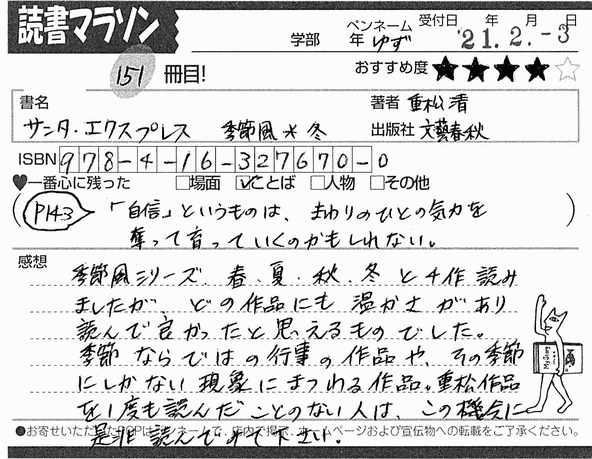 読書マラソン
学部 年 ペンネーム ゆず 受付日 年 月 日
'21.2.-3
151 冊目! おすすめ度 ★★★★☆
書名 著者 重松清
サンタ・エクスプレス 季節風*冬 出版社 文藝春秋
ISBN 978-4-16-327670-0
♥一番心に残った □場面 ☑ことば □人物 □その他
(P143 「自信」というものは、まわりのひとの気力を
奪って育っていくのかもしれない。)
感想
季節風シリーズ、春、夏、秋、冬と4作読み
ましたが、どの作品にも温かさがあり
読んで良かったと思えるものでした。
季節ならではの行事の作品や、その季節
にしかない現象にまつわる作品。重松作品
を1度も読んだことのない人は、この機会に
是非読んでみて下さい。
●お寄せいただいたPOPはペンネームで、店内で掲示、ホームページおよび宣伝物への転載をご了承ください。